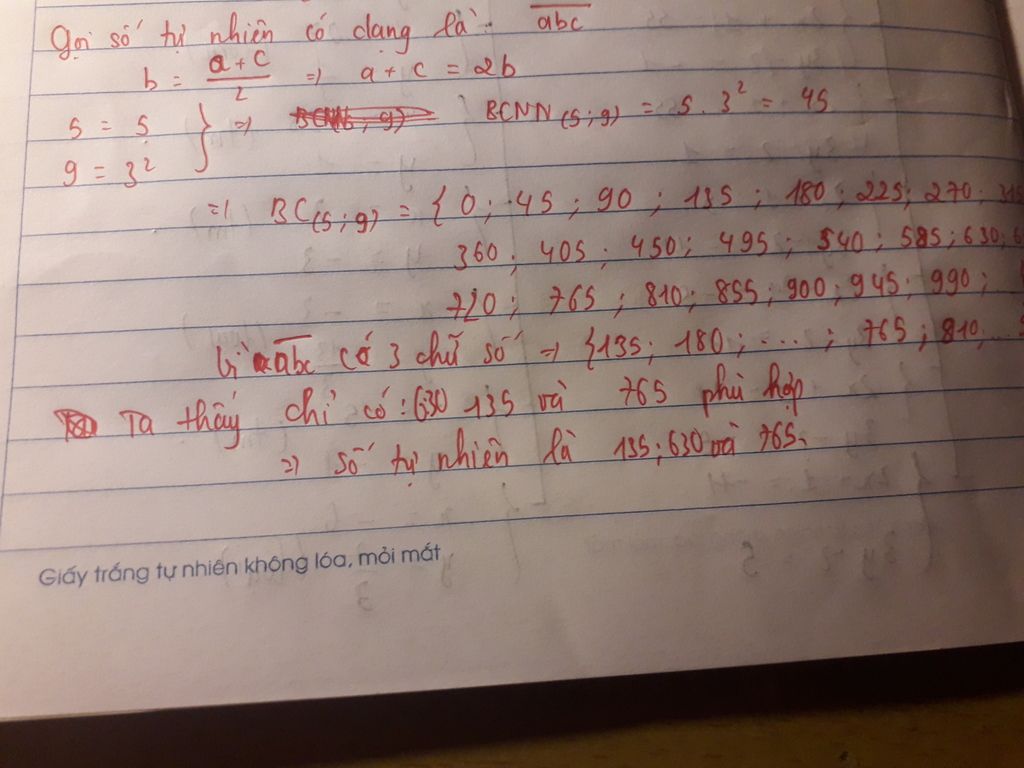 Gọi số tự nhiên có dạng là: abc
b = a+c/2 => a + c = 2b
5 = 5 } => BCNN(5;9) = 5.3² = 45
9 = 3²
=> BC(5;9) = {0; 45; 90; 135; 180; 225; 270; 315
360; 405; 450; 495; 540; 585; 630;
720; 765; 810; 855; 900; 945; 990;
Vì abc có 3 chữ số => {135; 180; ...; 765; 810;...
Ta thấy chỉ có: 630 135 và 765 phù hợp
=> số tự nhiên là 135; 630 và 765.
Giấy trắng tự nhiên không lóa, mỏi mắt